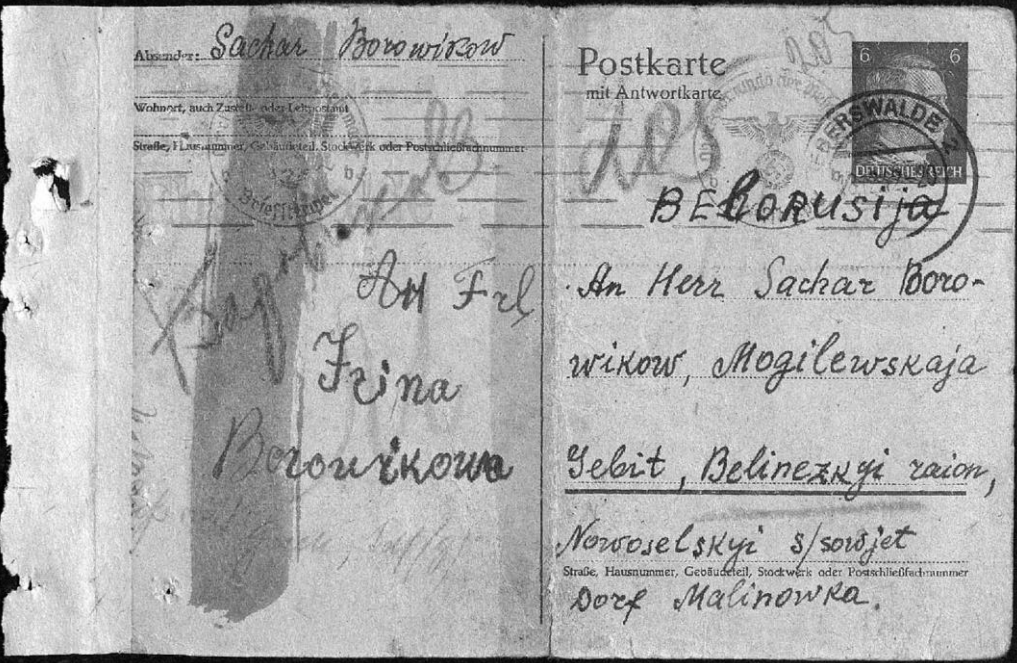 Absender: Sachar Borowikow
Wohnort, auch Zustell- oder Leitpostamt
Straße, Hausnummer, Gebäudeteil, Stockwerk oder Postschließfachnummer
b.
Briefstempel
An Frl
Irina
Borowikowa
Postkarte
mit Antwortkarte
6 6
EBERSWALDE 2
DEUTSCHES REICH
BELORUSija
An Herr Sachar Boro-
wikow, Mogilewskaja
Gebit, Belinezkyi raion,
Nowoselskyi s/sowjet
Straße, Hausnummer, Gebäudeteil, Stockwerk oder Postschließfachnummer
Dorf Malinowka.